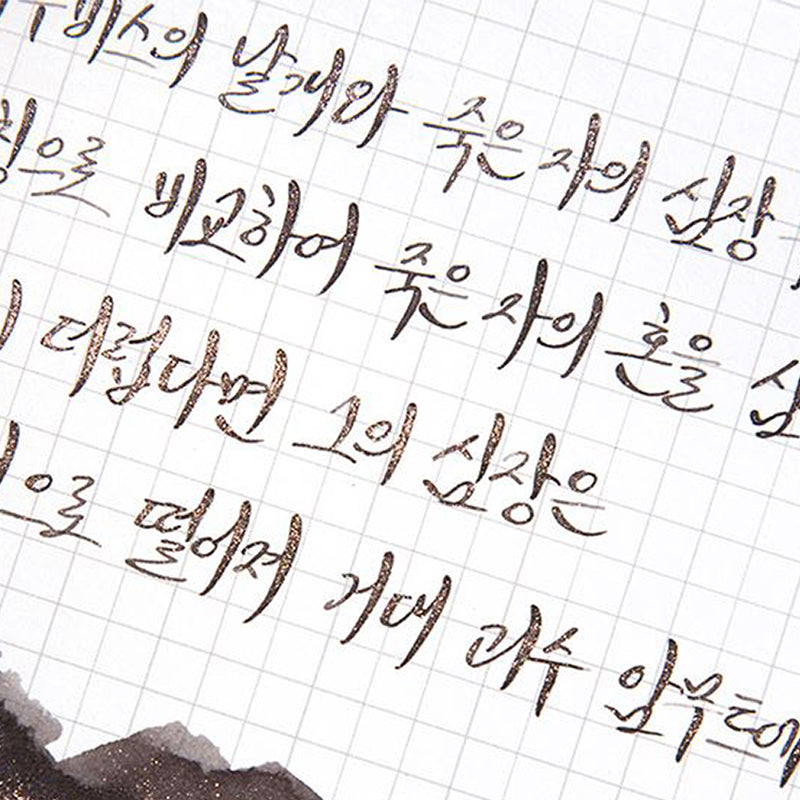 누비스의 날개와 죽은 자의 심장
칭으로 비교하여 죽은 자의 혼을 심
더럽다면 그의 심장은
으로 떨어져 거대 괴수 암무트에